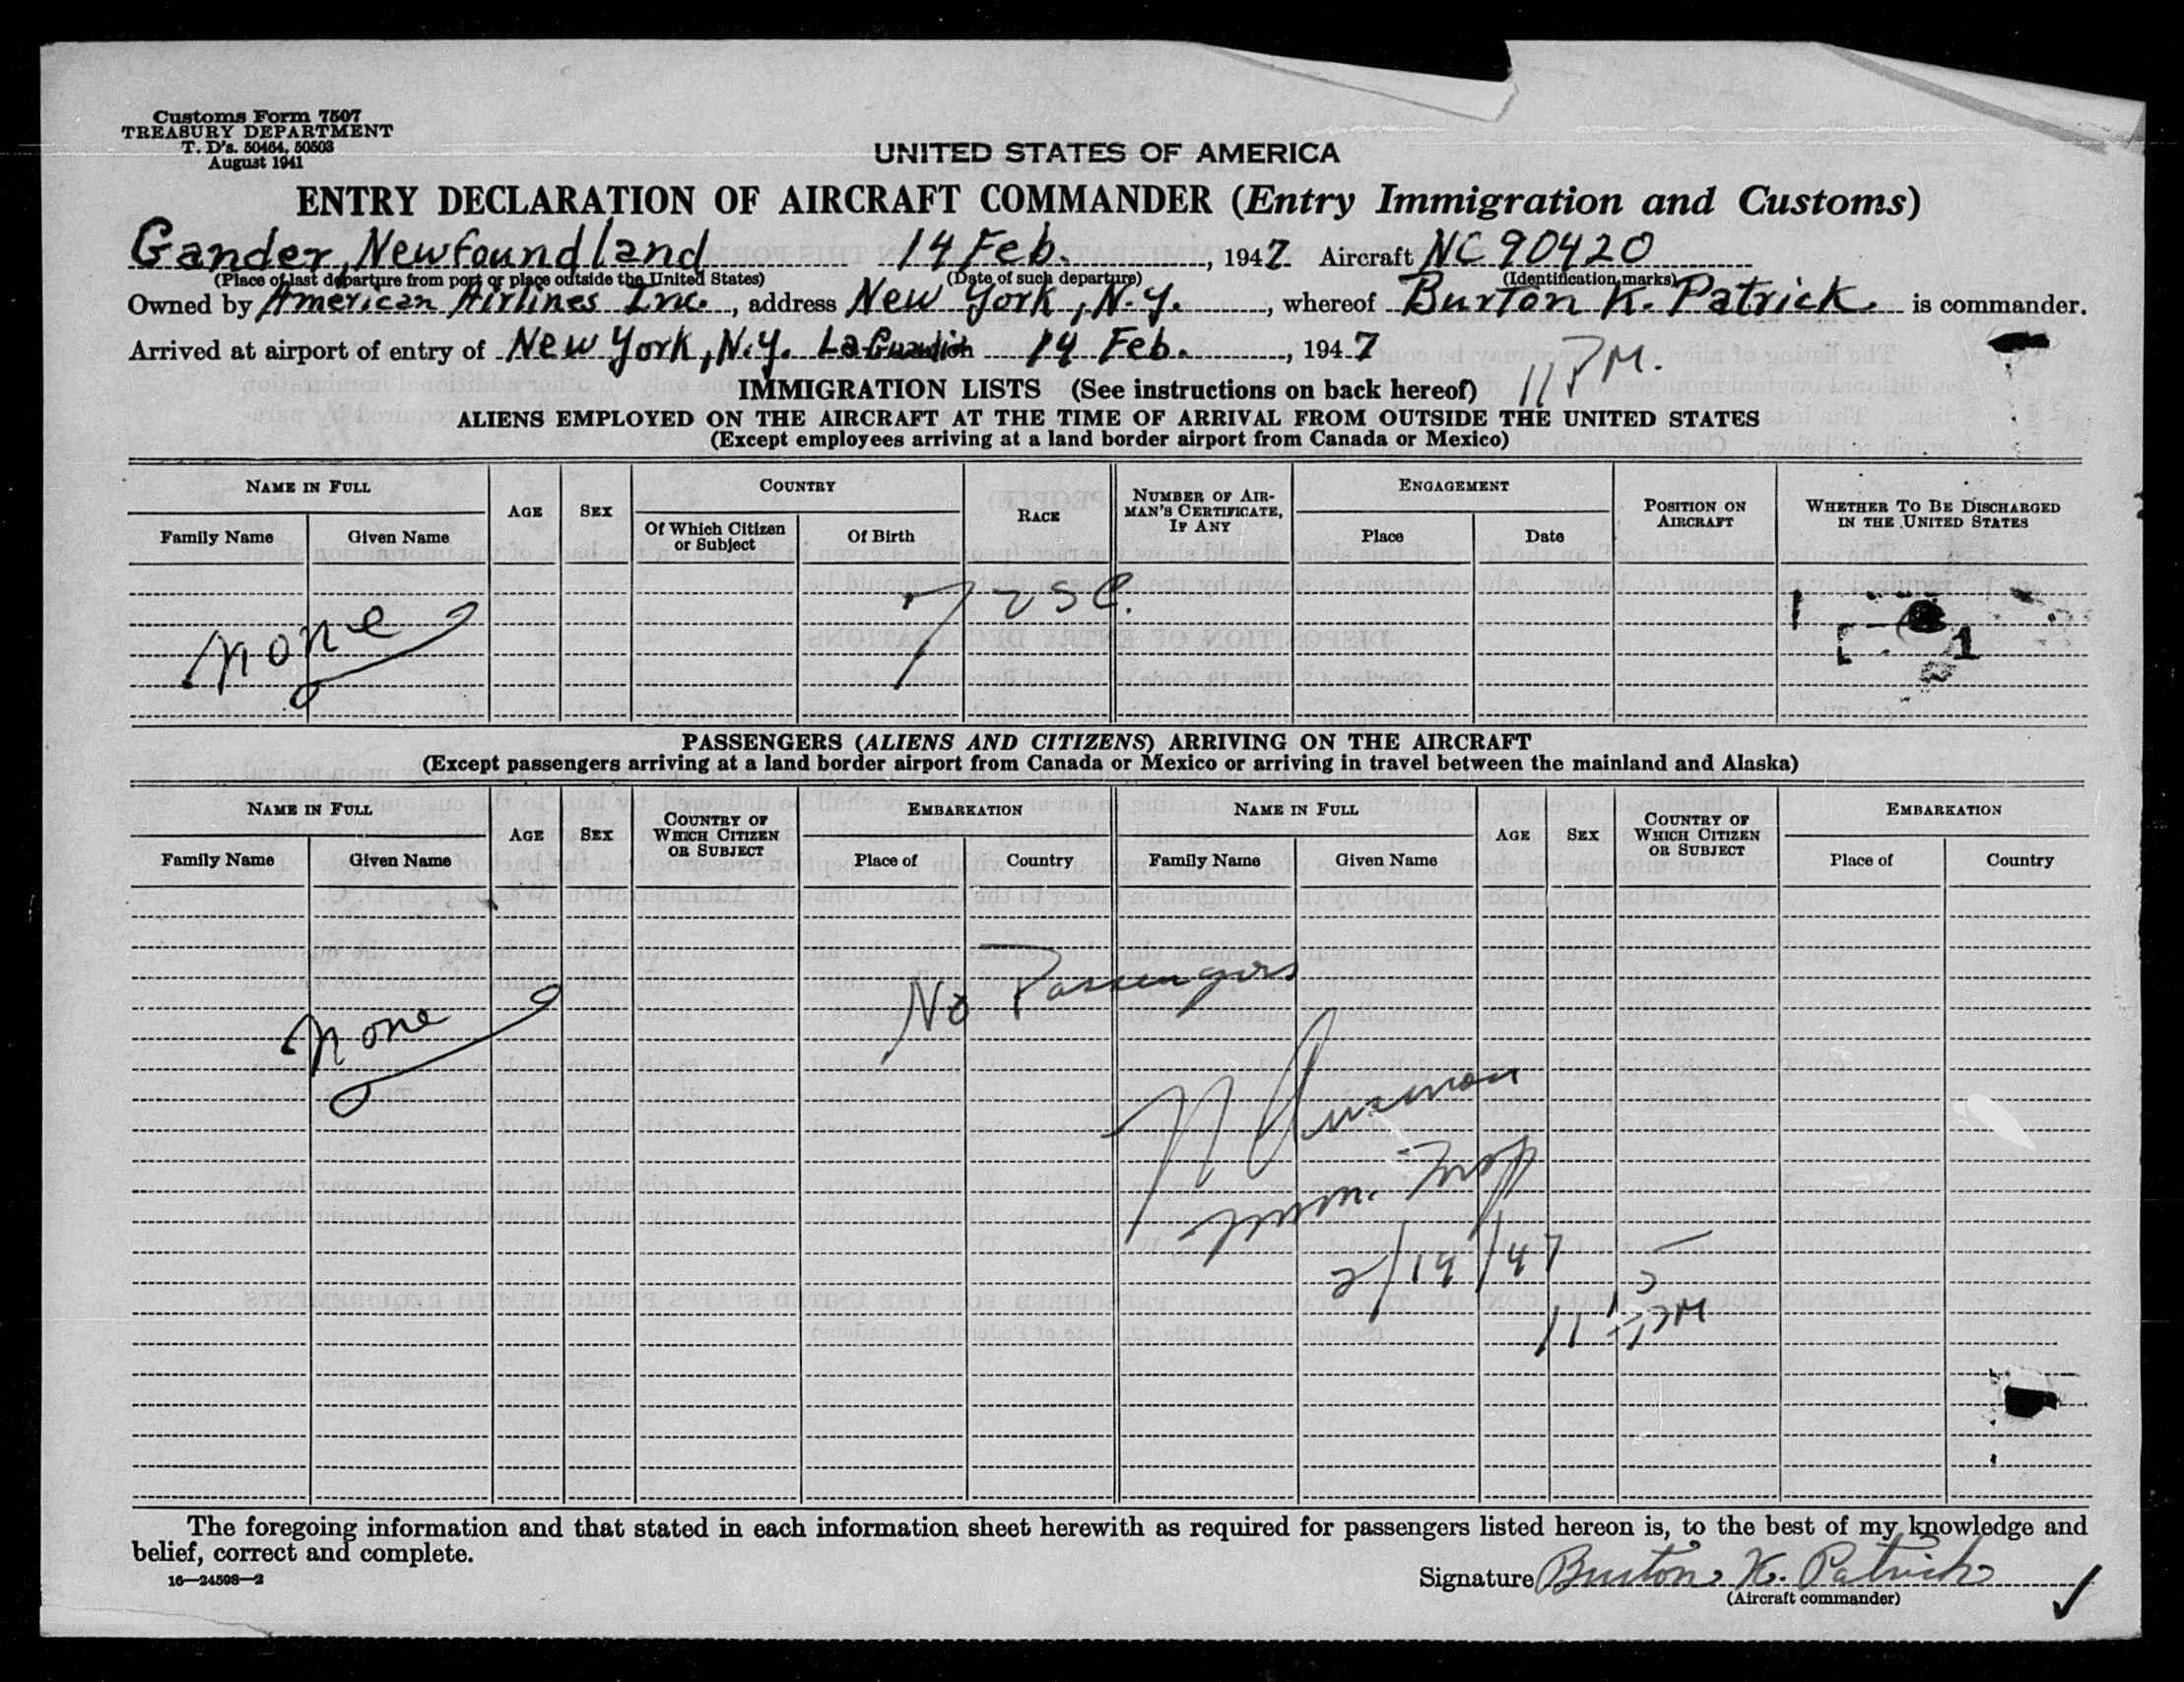 Customs Form 7507
TREASURY DEPARTMENT
T. D's. 50464, 50503
August 1941
UNITED STATES OF AMERICA
ENTRY DECLARATION OF AIRCRAFT COMMANDER (Entry Immigration and Customs)
Gander, Newfoundland 14 Feb., 1947 Aircraft NC 90420
(Place of last departure from port or place outside the United States) (Date of such departure) (Identification marks)
Owned by American Airlines Inc., address New York, N.Y., whereof Burton K. Patrick is commander.
Arrived at airport of entry of New York, N.Y. LaGuardia 14 Feb., 1947
11 PM.
IMMIGRATION LISTS (See instructions on back hereof)
ALIENS EMPLOYED ON THE AIRCRAFT AT THE TIME OF ARRIVAL FROM OUTSIDE THE UNITED STATES
(Except employees arriving at a land border airport from Canada or Mexico)
NAME IN FULL AGE SEX COUNTRY RACE NUMBER OF AIRMAN'S CERTIFICATE, IF ANY ENGAGEMENT POSITION ON AIRCRAFT WHETHER TO BE DISCHARGED IN THE UNITED STATES
Family Name Given Name Of Which Citizen or Subject Of Birth Place Date
7 USC.
none
1
PASSENGERS (ALIENS AND CITIZENS) ARRIVING ON THE AIRCRAFT
(Except passengers arriving at a land border airport from Canada or Mexico or arriving in travel between the mainland and Alaska)
NAME IN FULL AGE SEX COUNTRY OF WHICH CITIZEN OR SUBJECT EMBARKATION NAME IN FULL AGE SEX COUNTRY OF WHICH CITIZEN OR SUBJECT EMBARKATION
Family Name Given Name Place of Country Family Name Given Name Place of Country
No Passengers
none
Imm. Insp
2/14/47
11 15 PM
The foregoing information and that stated in each information sheet herewith as required for passengers listed hereon is, to the best of my knowledge and
belief, correct and complete.
16—24598—2
Signature Burton K. Patrick
(Aircraft commander)